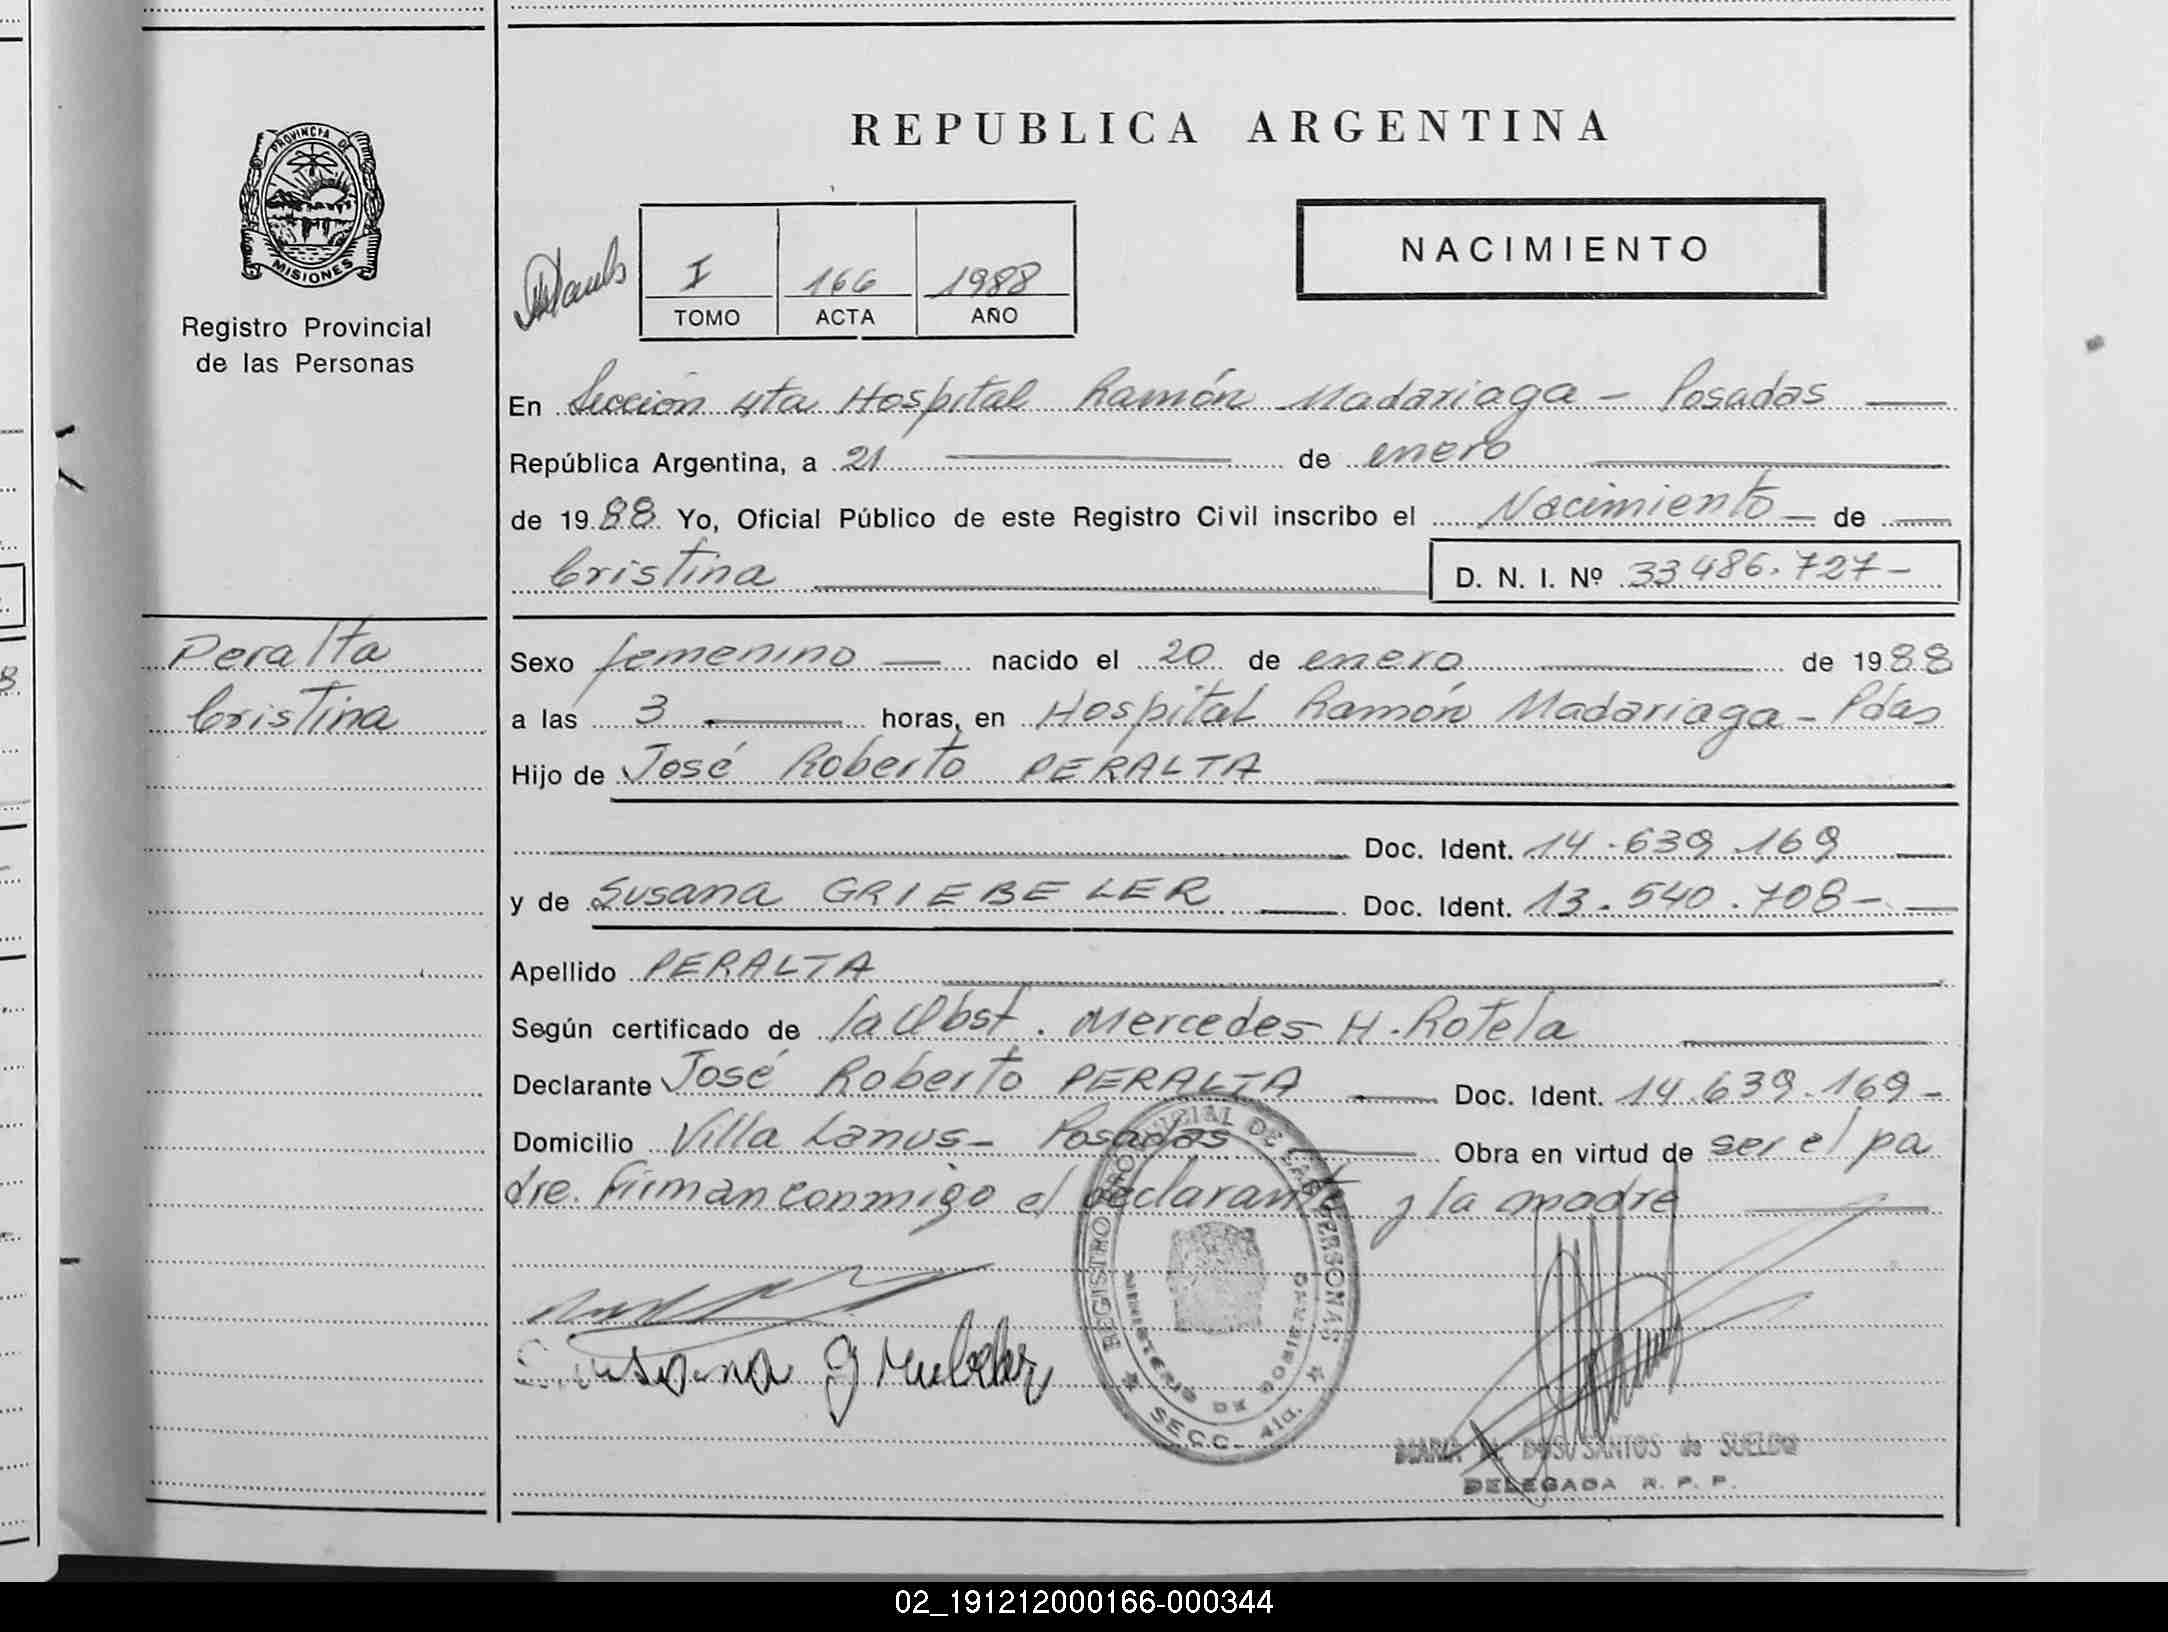 REPUBLICA ARGENTINA
PROVINCIA DE
MISIONES
Registro Provincial
de las Personas
NACIMIENTO
I 166 1988
TOMO ACTA AÑO
En Sección 4ta Hospital Ramón Madariaga - Posadas
República Argentina, a 21 de enero
de 1988 Yo, Oficial Público de este Registro Civil inscribo el Nacimiento de
Cristina D. N. I. Nº 33.486.727-
Peralta
Cristina
Sexo femenino nacido el 20 de enero de 1988
a las 3 horas, en Hospital Ramón Madariaga - Pdas
Hijo de José Roberto PERALTA
Doc. Ident. 14.639.169
y de Susana GRIEBELER Doc. Ident. 13.540.708-
Apellido PERALTA
Según certificado de la Obst. Mercedes H. Rotela
Declarante José Roberto PERALTA Doc. Ident. 14.639.169-
Domicilio Villa Lanus - Posadas Obra en virtud de ser el pa
dre. Firman conmigo el declarante y la madre
REGISTRO PROVINCIAL DE LAS PERSONAS
MINISTERIO DE GOBIERNO
SECC. 4ta.
Susana
DOS SANTOS de SUELDO
DELEGADA R. P. P.
02_191212000166-000344